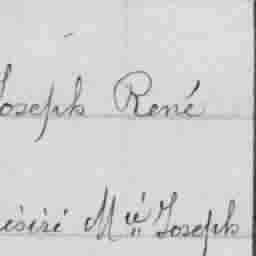 Joseph René
ésiré M.ié Joseph